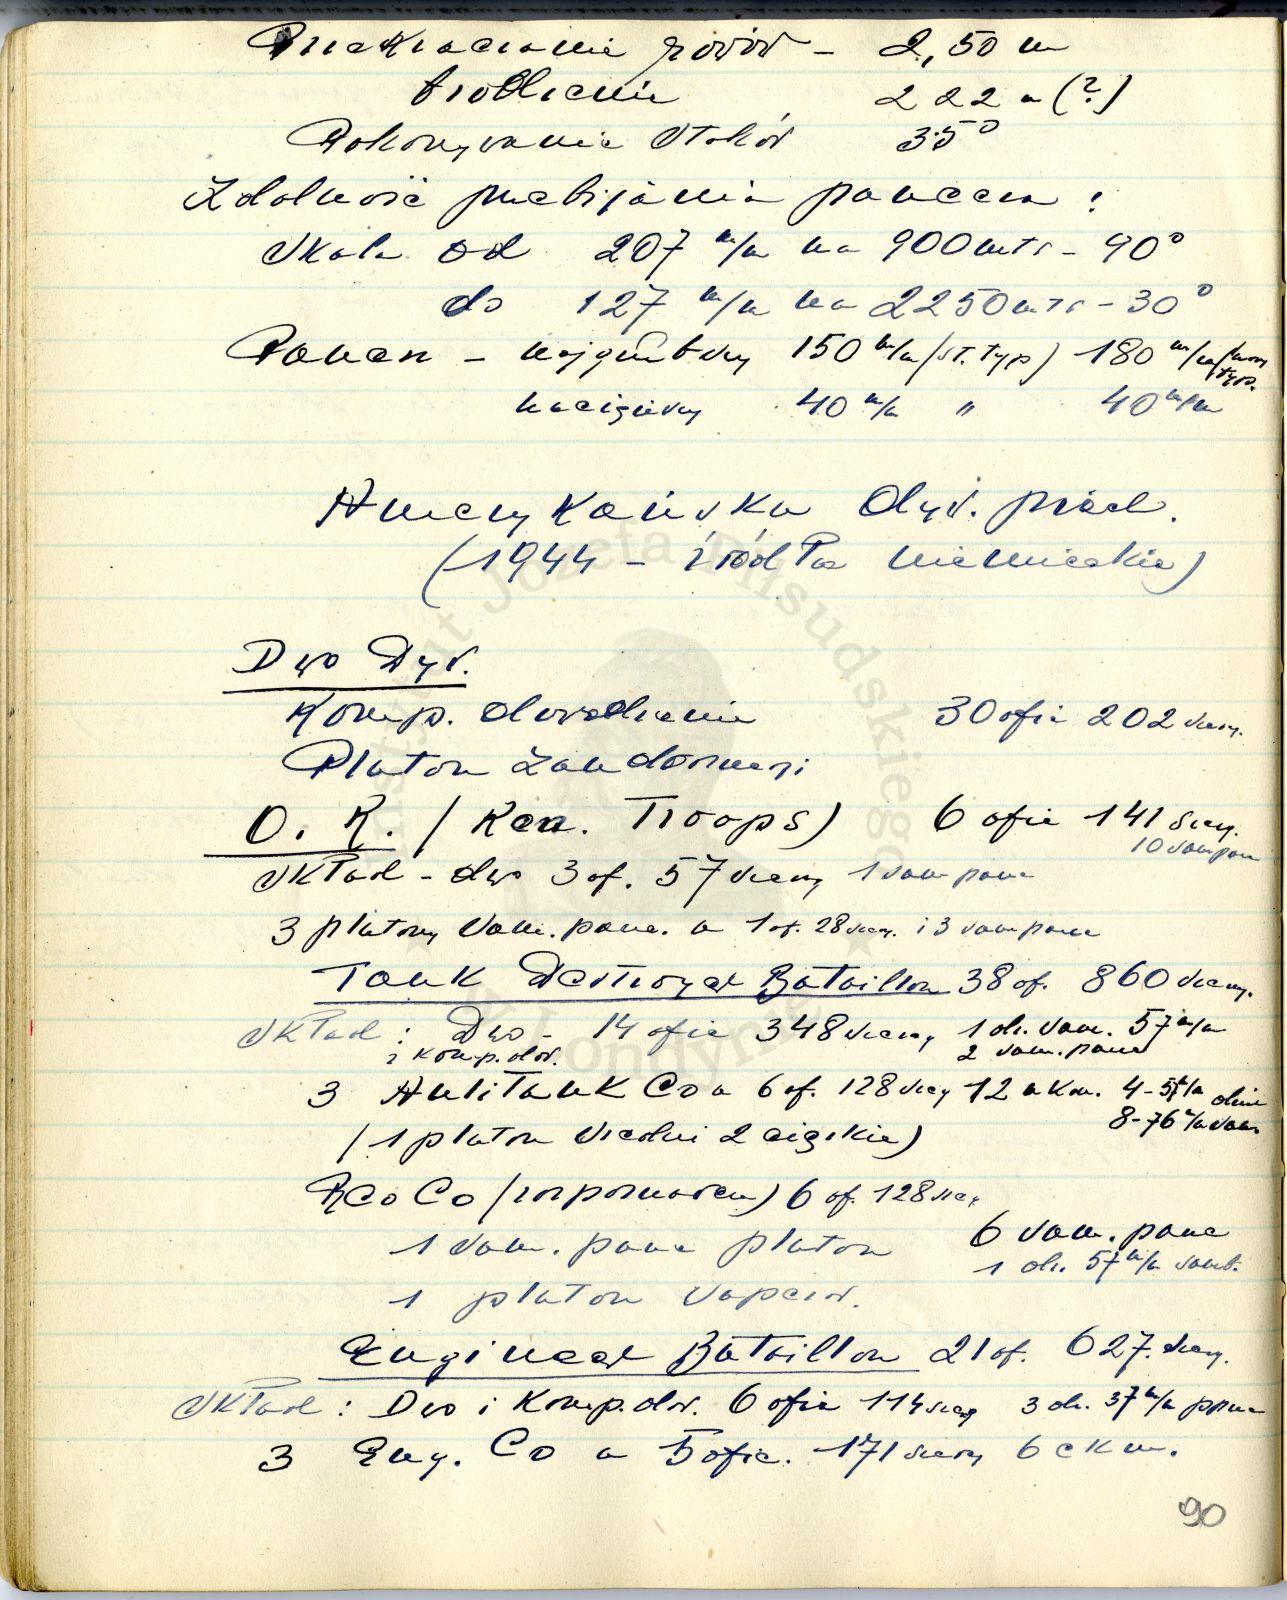 Przekraczanie rowów - 2,50 m
brodzenie 2 22 m (?)
Pokonywanie stoków 35°
Zdolność przebijania pancerza:
Skala od 207 m/m na 900 mtr - 90°
do 127 m/m na 2250 mtr - 30°
Pancerz - najgrubszy 150 m/m (st. typ) 180 m/m (nowy typ.
najcieńszy 40 m/m " 40 m/m
Amerykańska Dyw. panc.
(1944 - źródła niemieckie)
Dwo Dyw.
Komp. dowodzenia 30 ofic 202 szer.
Pluton żandarmerji
O. R. (Rcn. Troops) 6 ofic 141 szer.
10 sam panc
Skład - dwo 3 of. 57 szereg 1 sam panc
3 plutony sam. panc. a 1 of. 28 szer. i 3 sam panc
Tank Destroyer Bataillon 38 of. 860 szereg.
Skład: Dwo - 14 ofic 348 szereg 1 dz. sam. 57 m/m
i komp. dow. 2 sam. panc
3 AntiTank Co a 6 of. 128 szereg 12 nkm. 4 - 57 m/m
8 - 76 m/m sam
(1 pluton średni 2 ciężkie)
Rco Co (rozpoznawcza) 6 of. 128 szer,
6 sam. panc
1 sam. panc pluton
1 dz. 57 m/m
1 pluton saperów.
Engineer Bataillon 21 of. 627. szereg.
Skład: Dwo i Komp. dow. 6 ofic 114 szereg 3 dz. 37 m/m ppanc
3 Eng. Co a 5 ofic. 171 szereg 6 ckm.
90
Instytut Józefa Piłsudskiego
w Londynie